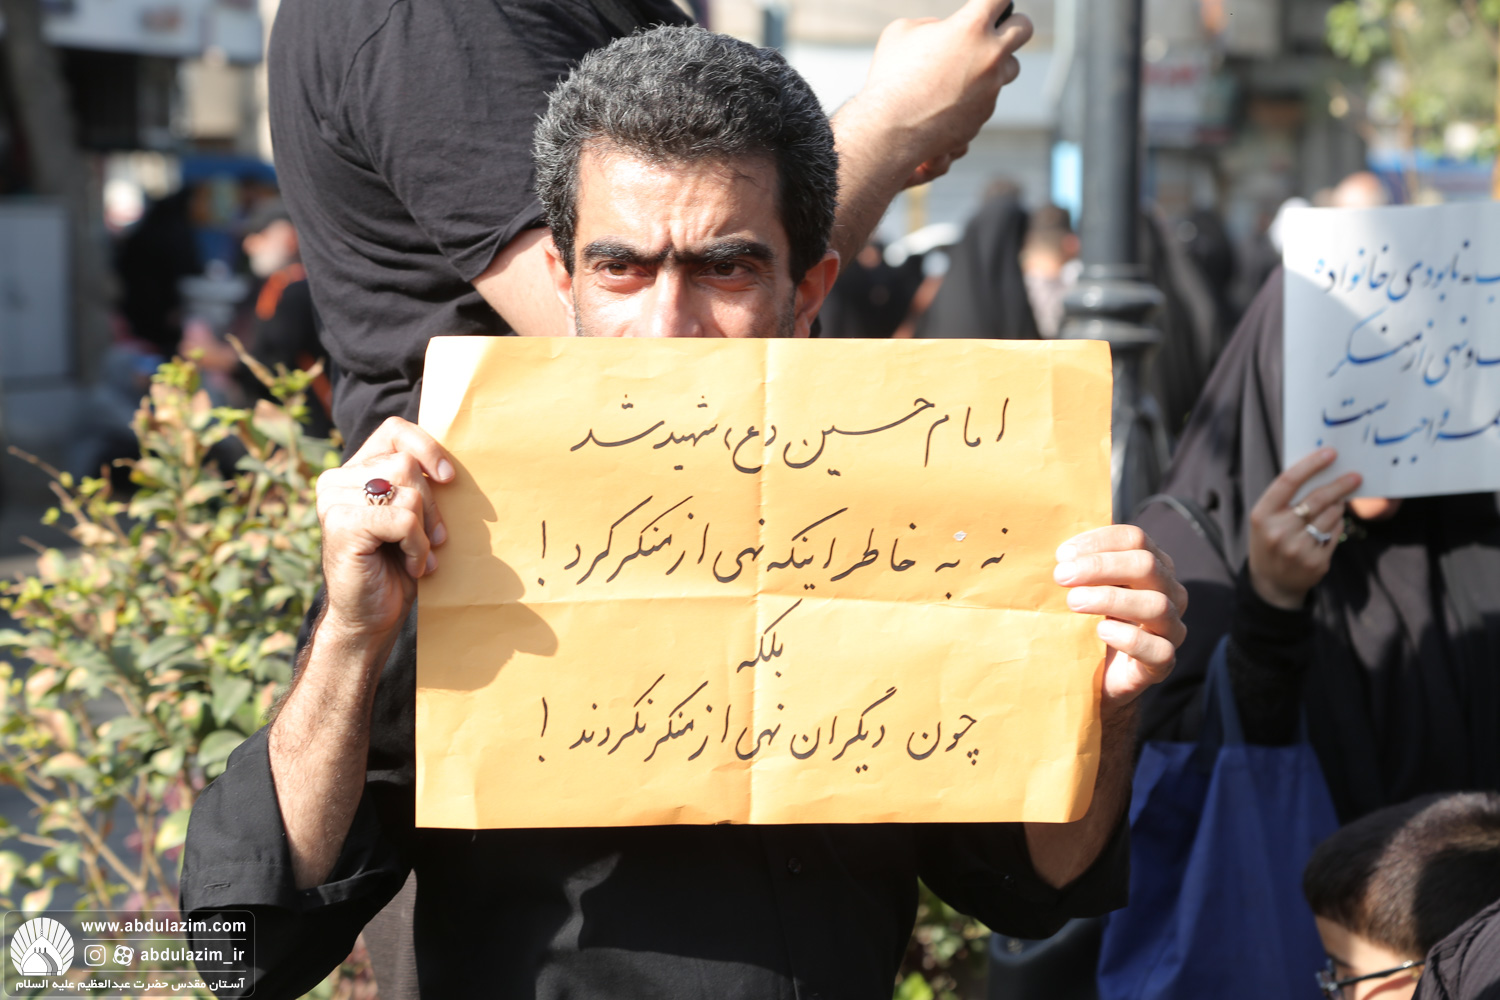 امام حسین (ع) شهید شد
نه به خاطر اینکه نهی از منکر کرد !
بلکه
چون دیگران نهی از منکر نکردند !
نابودی خانواده
ونهی از منکر
واجب است
www.abdulazim.com
abdulazim_ir
آستان مقدس حضرت عبدالعظیم علیه السلام